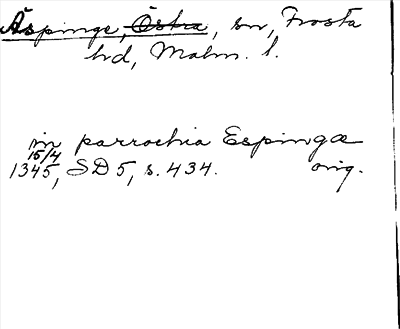 Äspinge, Östra, sn, Frosta
hd, Malm. l.
in parrochia Espingæ
15/4
1345, SD 5, s. 434. orig.